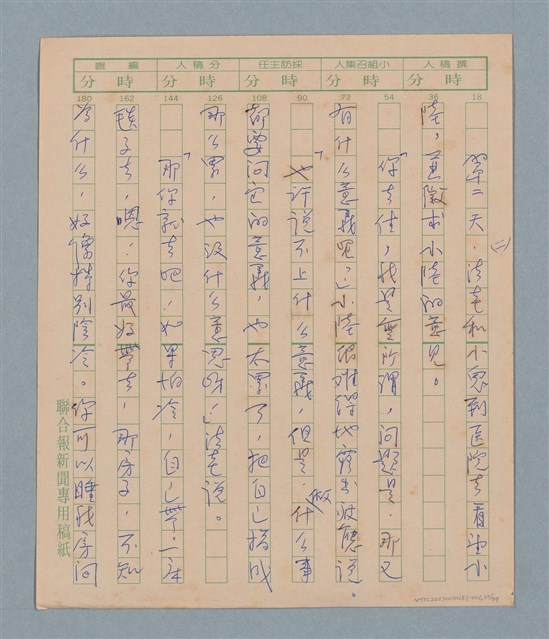 撰稿人 小組召集人 採訪主任 分稿人 編輯
時 分 時 分 時 分 時 分 時 分
18
36
54
72
90
108
126
144
162
180
(二)
第二天,清屯和小恩到医院去看望小
陸,並徵求小陸的意見。
「你去住,我是無所謂,問題是,那又
有什么意義呢?」小陸很难得地露出疲憊說。
「也许说不上什么意義,但是,做什么事
都要问它的意義,也太累了,把自己搞成
那么累,也没什么意思呀!」清屯說。
「那你就去吧!如果怕冷,自己帶一床
毯子去,嗯!你最好帶去,那房子,不知
为什么,好像特别陰冷。你可以睡我房间
聯合報新聞專用稿紙